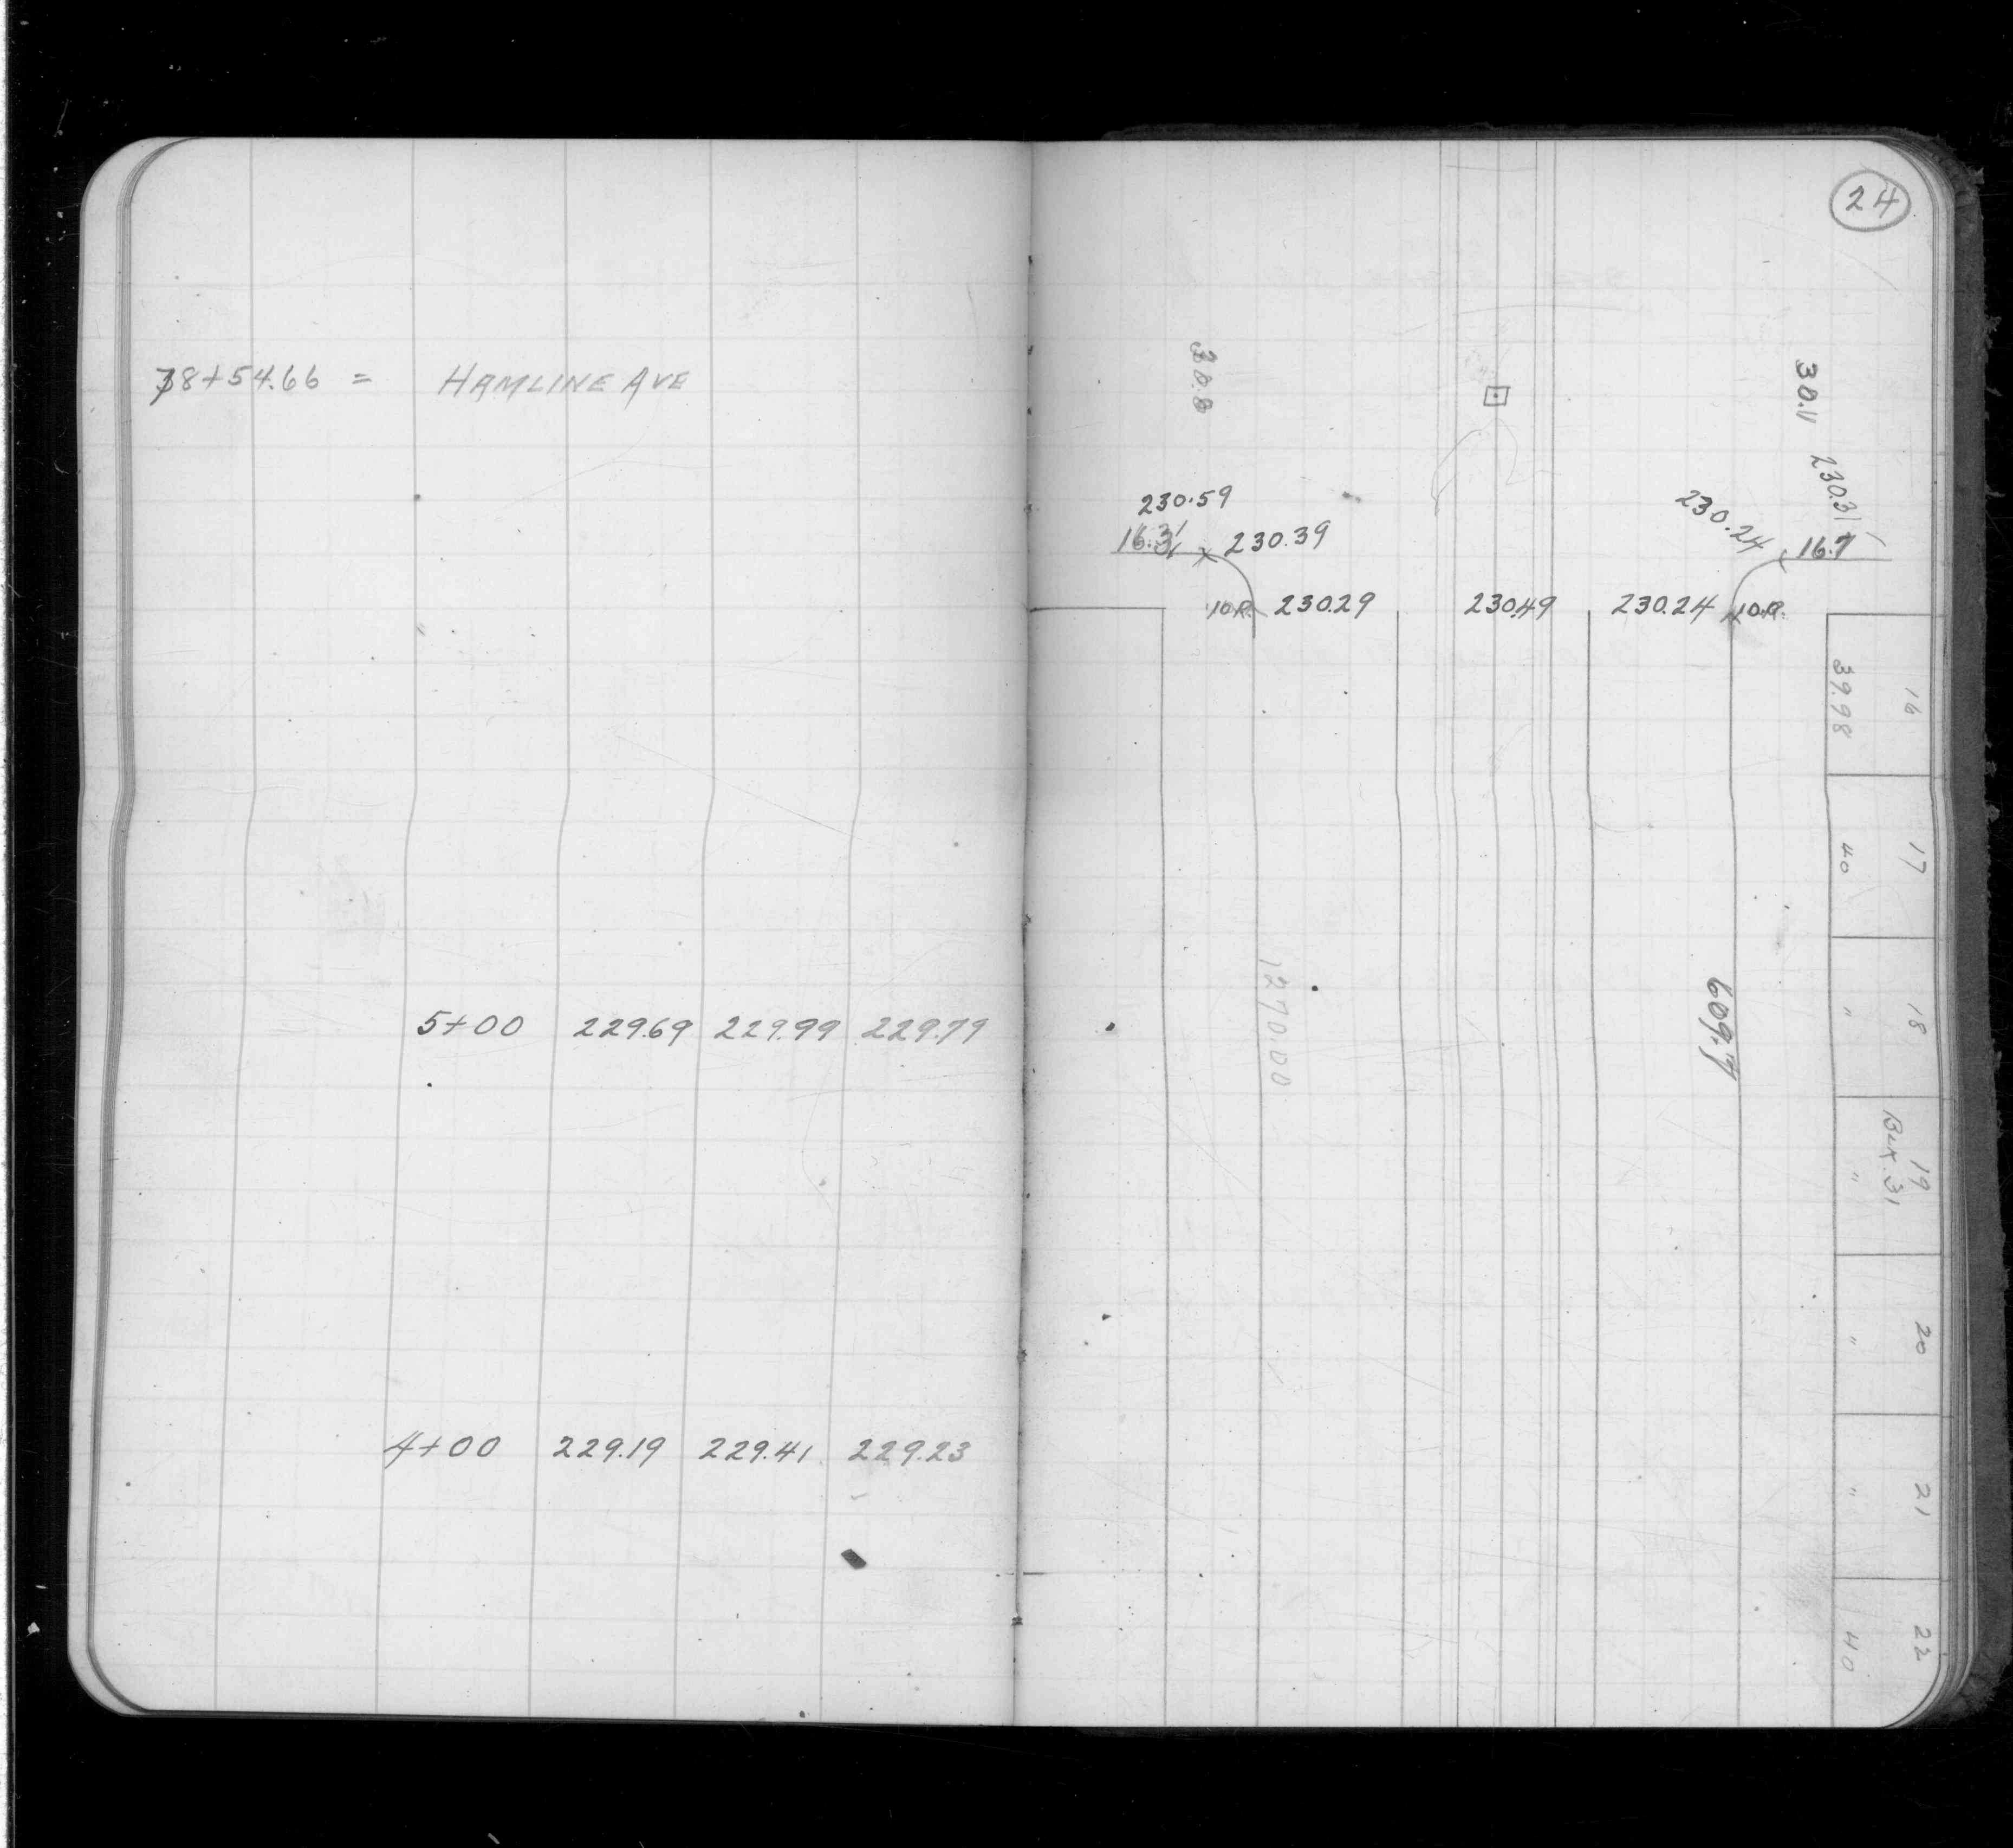 78+54.66 = HAMLINE AVE
5+00 229.69 229.99 229.79
4+00 229.19 229.41 229.23
24
30.8
30.11
230.31
230.59
230.24
16.3' 230.39
16.7
10R. 230.29 230.49 230.24 10R.
39.98 16
40 17
1270.00
609.7
" 18
Blk. 31
" 19
" 20
" 21
40 22